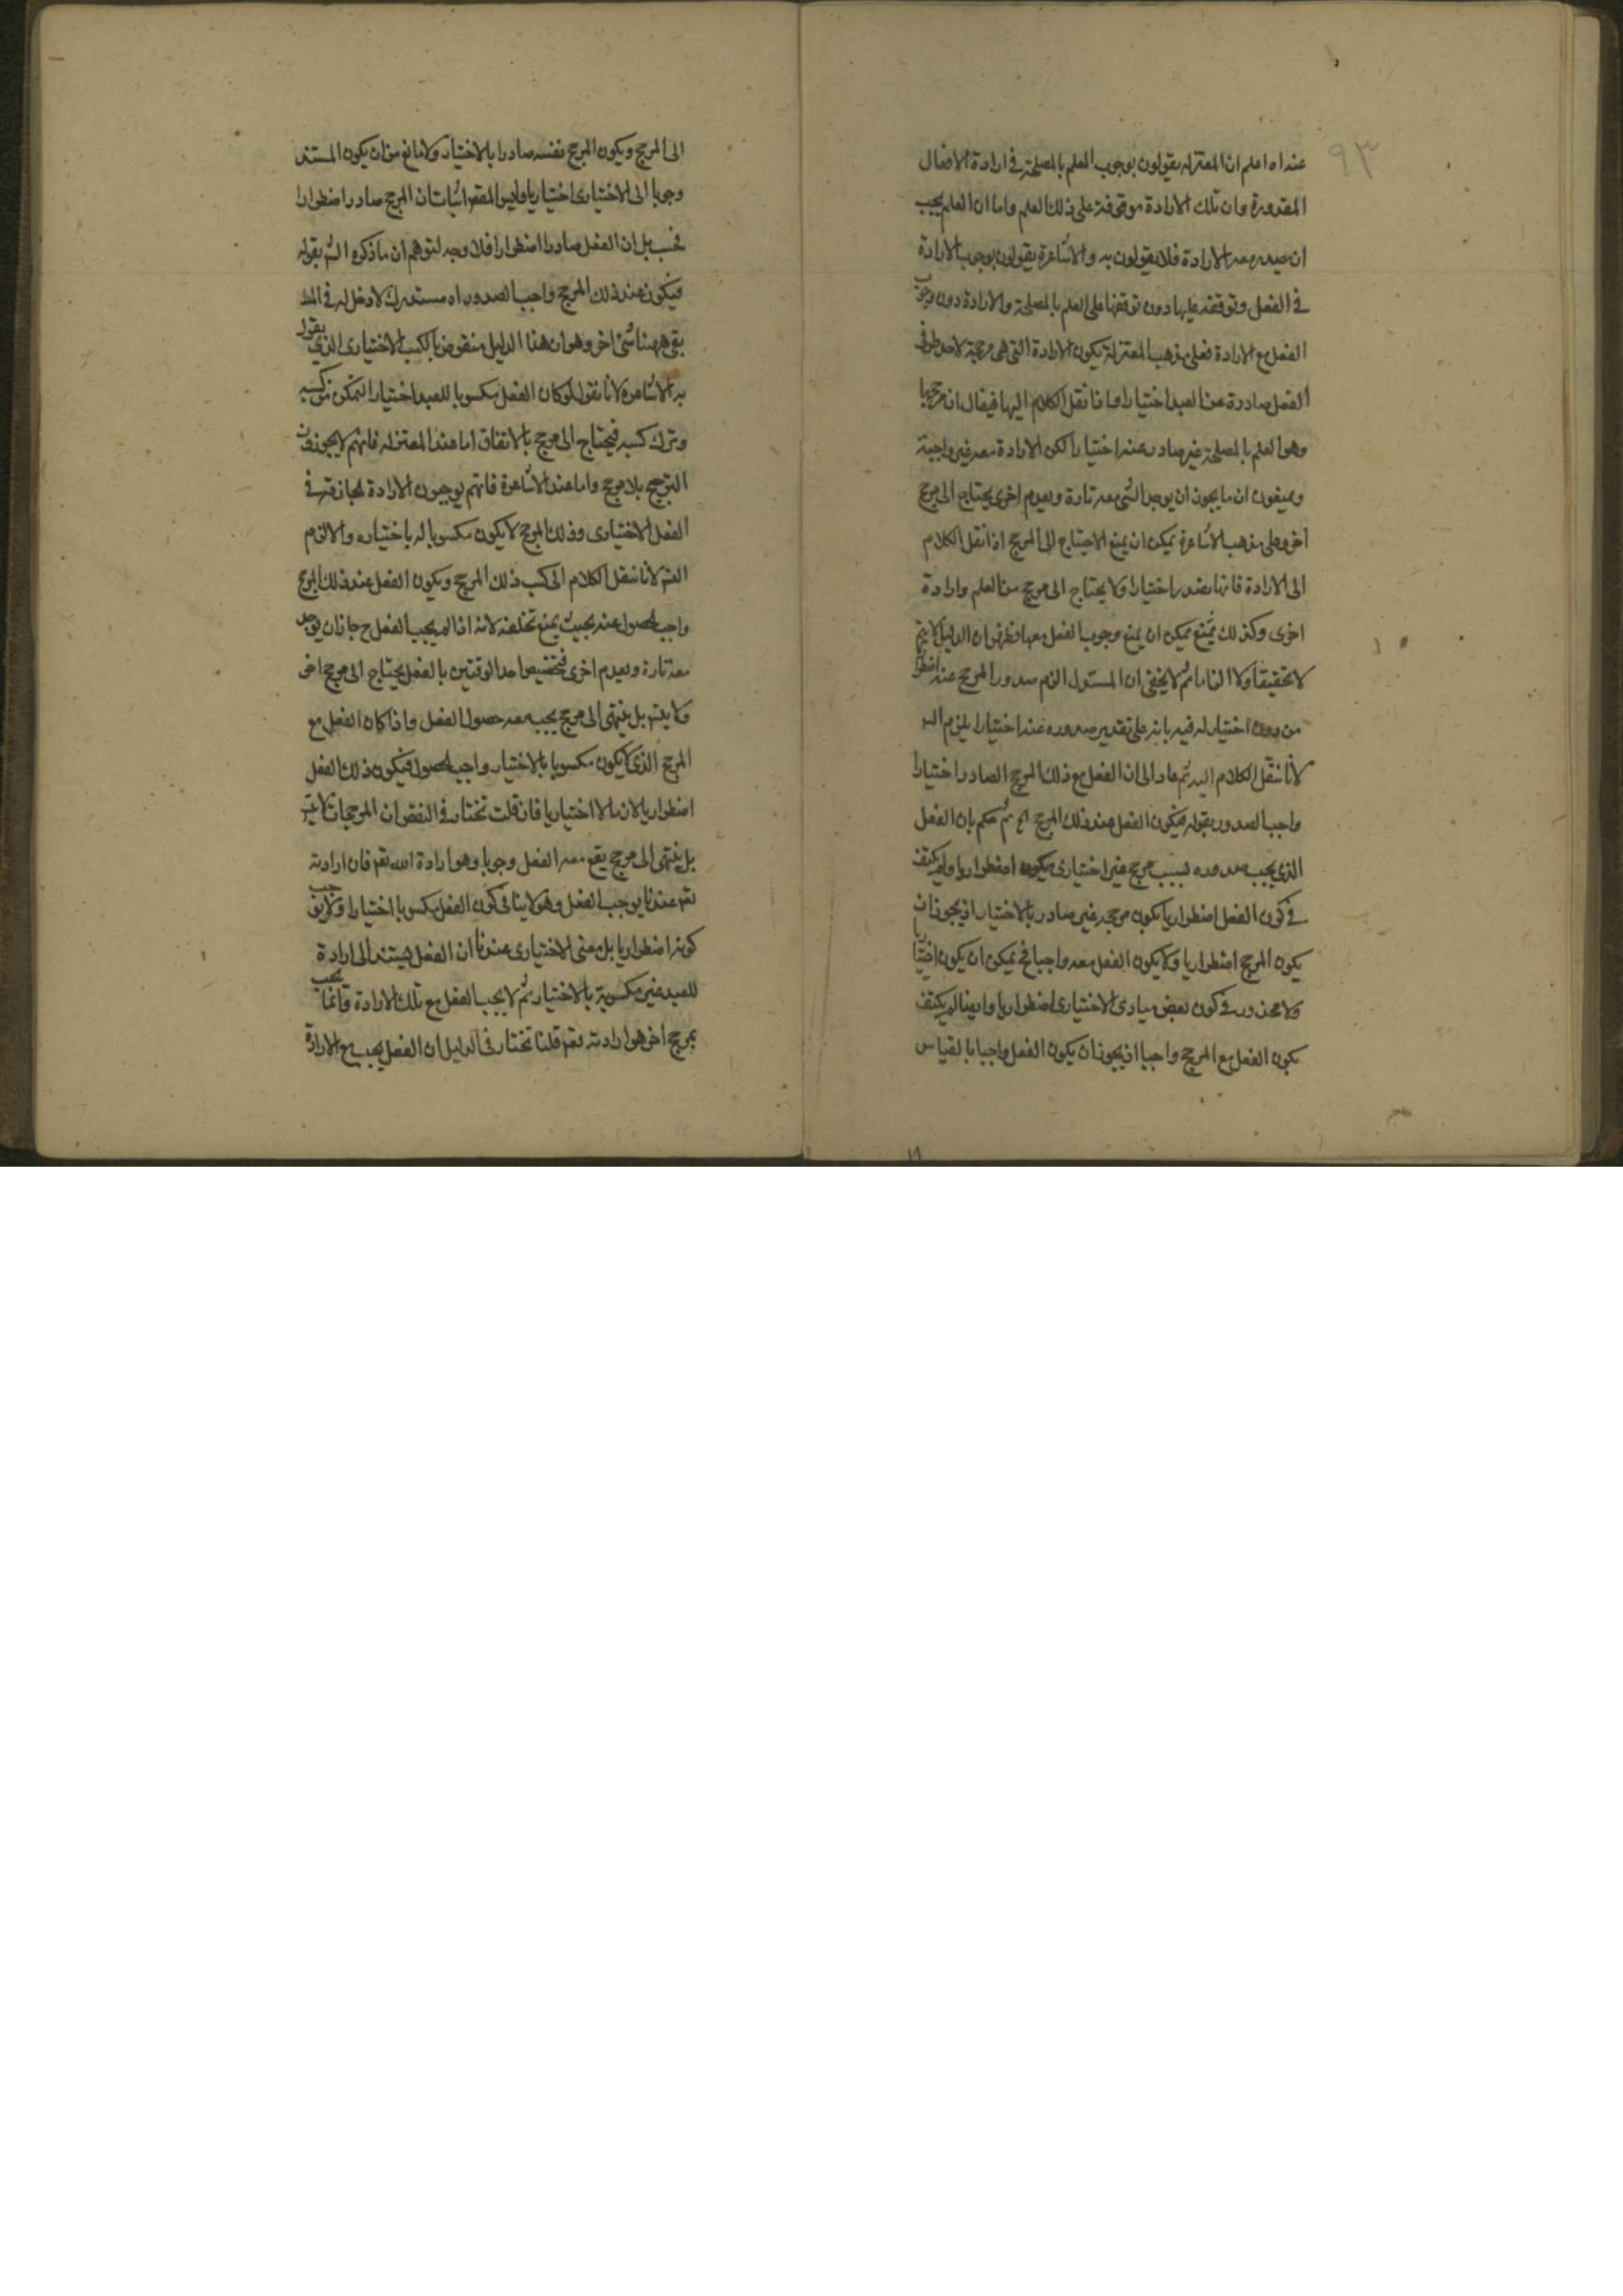 ٩٣
عنه اه اعلم ان المعتزله يقولون بوجوب العلم بالمصلحة في ارادة الافعال
المقدورة وان تلك الارادة موقوفة على ذلك العلم واما ان العلم يجب
ان يصدر معه الارادة فلا يقولون به والاشاعرة يقولون بوجوب الارادة
في الفعل وتوقفه عليها دون توقفها على العلم بالمصلحة والارادة دون وجوب
الفعل مع الارادة فعلى مذهب المعتزلة يكون الارادة التي هي مرجحة لاحد طرفي
الفعل صادرة عن العبد اختيارا واذا نقل الكلام اليها فيقال ان مرجحها
وهو العلم بالمصلحة غير صادر عنه اختيارا لكن الارادة معه غير واجبة
ويبقون ان ما يجوز ان يوجد الشئ معه تارة ويعدم اخرى يحتاج الى مرجح
اخر وعلى مذهب الاشاعرة يمكن ان يمنع الاحتياج الى المرجح اذا نقل الكلام
الى الارادة فانها تصدر اختيارا ولا يحتاج الى مرجح من العلم وارادة
اخرى وكذلك يمكن ان يمنع وجوب الفعل معها فظهر ان الدليل لا يتم
لا تحقيقا ولا الزاما ثم لا يخفى ان المستدل الزم صدور المرجح عنه اضطرارا
من دون اختيار له فيه بانه على تقدير صدوره عنه اختيارا يلزم التسلسل
لانا ننقل الكلام اليه ثم عاد الى ان الفعل مع ذلك المرجح الصادر اختيارا
واجب الصدور بقوله فيكون الفعل عند ذلك المرجح اه ثم حكم بان الفعل
الذي يجب صدوره بسبب مرجح غير اختياري يكون اضطراريا ولم يكتف
في كون الفعل اضطراريا بكون مرجحه غير صادر بالاختيار اذ يجوز ان
يكون المرجح اضطراريا ولا يكون الفعل معه واجبا فح يمكن ان يكون اختياريا
ولا محذور في كون بعض مبادى الاختيارى اضطراريا وايضا لم يكتف
بكون الفعل مع المرجح واجبا اذ يجوز ان يكون الفعل واجبا بالقياس
الى المرجح ويكون المرجح نفسه صادرا بالاختيار ولا مانع من ان يكون المستند
وجوبا الى الاختيارى اختياريا وليس المقصود اثبات ان المرجح صادر اضطرارا
فحسب بل ان الفعل صادر اضطرارا فلا وجه لتوهم ان ما ذكره الش بقوله
فيكون عند ذلك المرجح واجب الصدور اه مستدرك لا دخل له في المط
بقى ههنا شئ اخر وهو ان هذا الدليل منقوض بالكسب الاختيارى الذي يقول
به الاشاعرة لانا نقول لو كان الفعل مكسوبا للعبد اختيارا لتمكن من كسبه
وترك كسبه فيحتاج الى مرجح بالاتفاق اما عند المعتزله فانهم لا يجوزون
الترجح بلا مرجح واما عند الاشاعرة فانهم يوجبون الارادة في
الفعل الاختيارى وذلك المرجح لا يكون مكسوبا له باختياره والا لزم
التس لانا ننقل الكلام الى كسب ذلك المرجح ويكون الفعل عند ذلك المرجح
واجب الحصول عنه بحيث يمتنع تخلفه لانه اذا لم يجب الفعل ح جاز ان يوجد
معه تارة ويعدم اخرى فتخصيص احد الوقتين بالفعل يحتاج الى مرجح اخر
ولا يتس بل ينتهى الى مرجح يجب معه حصول الفعل واذا كان الفعل مع
المرجح الذي لا يكون مكسوبا بالاختيار واجب الحصول فيكون ذلك الفعل
اضطراريا لازما لا اختياريا فان قلت نختار في النقض ان المرجحات لا يتس
بل ينتهى الى مرجح يقع معه الفعل وجوبا وهو ارادة الله تعم فان ارادته
تعم عندنا يوجب الفعل وهو لا ينافى كون الفعل مكسوبا اختيارا ولا يوجب
كونه اضطراريا بل معنى الاختيارى عندنا ان الفعل يستند الى ارادة
للعبد غير مكسوبة بالاختيار ثم لا يجب الفعل مع تلك الارادة وانما يجب
بمرجح اخر هو ارادته تعم قلنا نختار في الدليل ان الفعل يجب مع الارادة